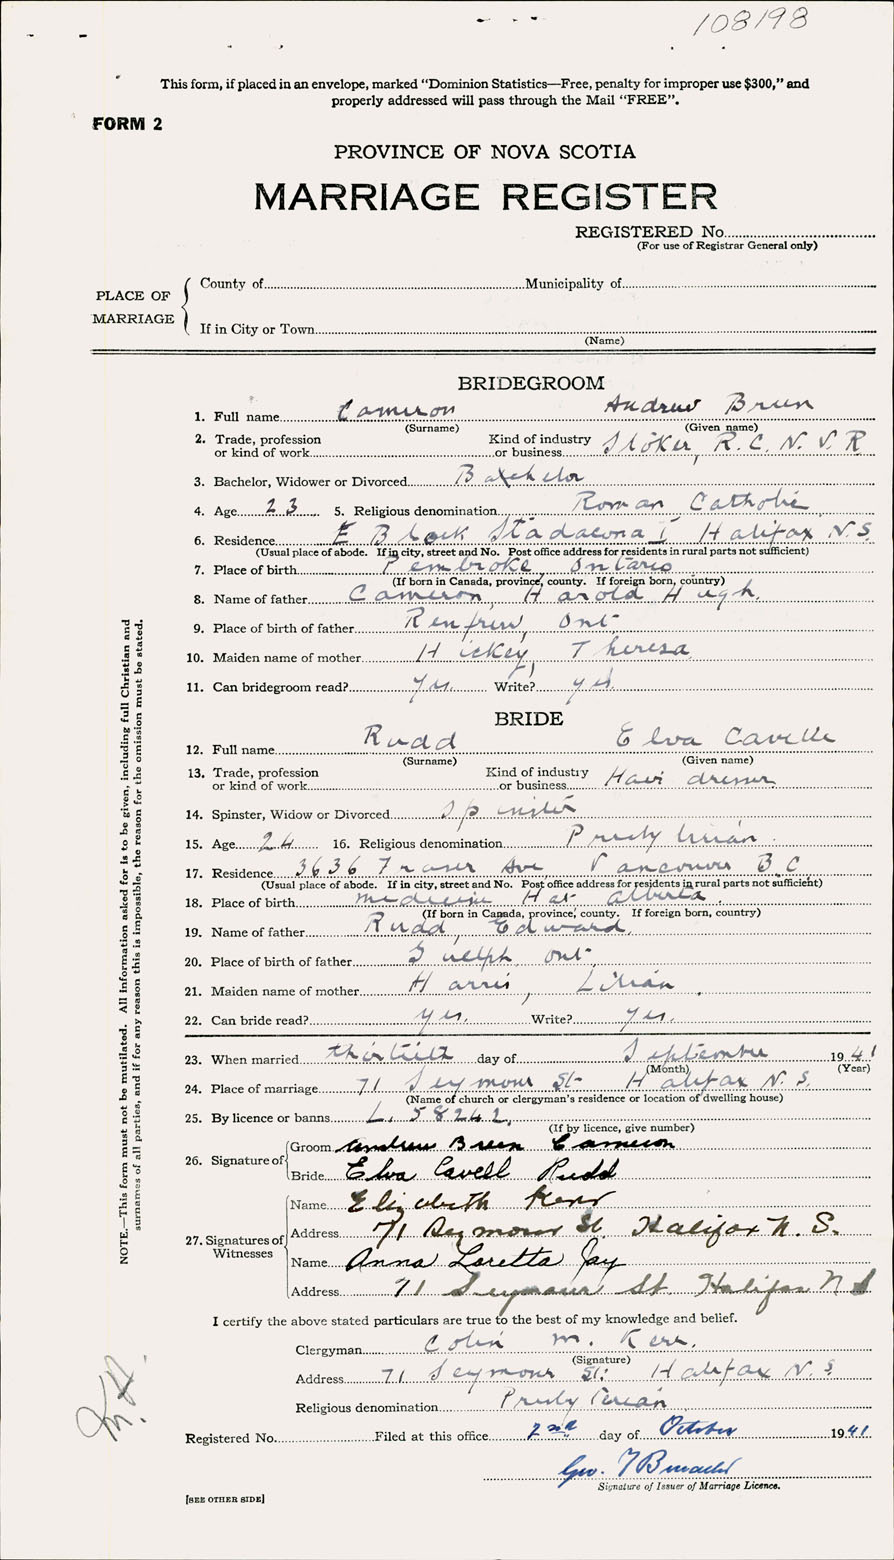 108198
This form, if placed in an envelope, marked “Dominion Statistics—Free, penalty for improper use $300,” and
properly addressed will pass through the Mail “FREE”.
FORM 2
PROVINCE OF NOVA SCOTIA
MARRIAGE REGISTER
REGISTERED No.
(For use of Registrar General only)
PLACE OF MARRIAGE
County of Municipality of
If in City or Town
(Name)
BRIDEGROOM
1. Full name Cameron Andrew Breen
(Surname) (Given name)
2. Trade, profession or kind of work Kind of industry or business Stoker, R.C.N.V.R
3. Bachelor, Widower or Divorced Bachelor
4. Age 23 5. Religious denomination Roman Catholic
6. Residence E Block Stadacona I Halifax N.S.
(Usual place of abode. If in city, street and No. Post office address for residents in rural parts not sufficient)
7. Place of birth Pembroke, Ontario
(If born in Canada, province, county. If foreign born, country)
8. Name of father Cameron, Harold Hugh.
9. Place of birth of father Renfrew, Ont.
10. Maiden name of mother Hickey, Theresa
11. Can bridegroom read? Yes. Write? yes
BRIDE
12. Full name Rudd Elva Cavelle
(Surname) (Given name)
13. Trade, profession or kind of work Kind of industry or business Hair dresser
14. Spinster, Widow or Divorced Spinster
15. Age 24 16. Religious denomination
17. Residence 3636 Fraser Ave Vancouver B.C
(Usual place of abode. If in city, street and No. Post office address for residents in rural parts not sufficient)
18. Place of birth Medicine Hat Alberta.
(If born in Canada, province, county. If foreign born, country)
19. Name of father Rudd, Edward.
20. Place of birth of father Guelph, Ont.
21. Maiden name of mother Harris, Lilian.
22. Can bride read? yes. Write? yes.
23. When married thirtieth day of September 1941
(Month) (Year)
24. Place of marriage 71 Seymour St Halifax N.S.
(Name of church or clergyman’s residence or location of dwelling house)
25. By licence or banns L. 58242.
(If by licence, give number)
26. Signature of Groom Andrew Breen Cameron
Bride Elva Cavell Rudd
27. Signatures of Witnesses
Name Elizabeth Kerr
Address 71 Seymour St. Halifax N.S.
Name Anna Loretta Jay
Address 71 Seymour St Halifax N S
I certify the above stated particulars are true to the best of my knowledge and belief.
Clergyman Colin M. Kerr.
(Signature)
Address 71 Seymour St. Halifax N.S.
Religious denomination
Registered No. Filed at this office 2nd day of October 1941
Geo.
Signature of Issuer of Marriage Licence.
[SEE OTHER SIDE]
NOTE.—This form must not be mutilated. All information asked for is to be given, including full Christian and
surnames of all parties, and if for any reason this is impossible, the reason for the omission must be stated.